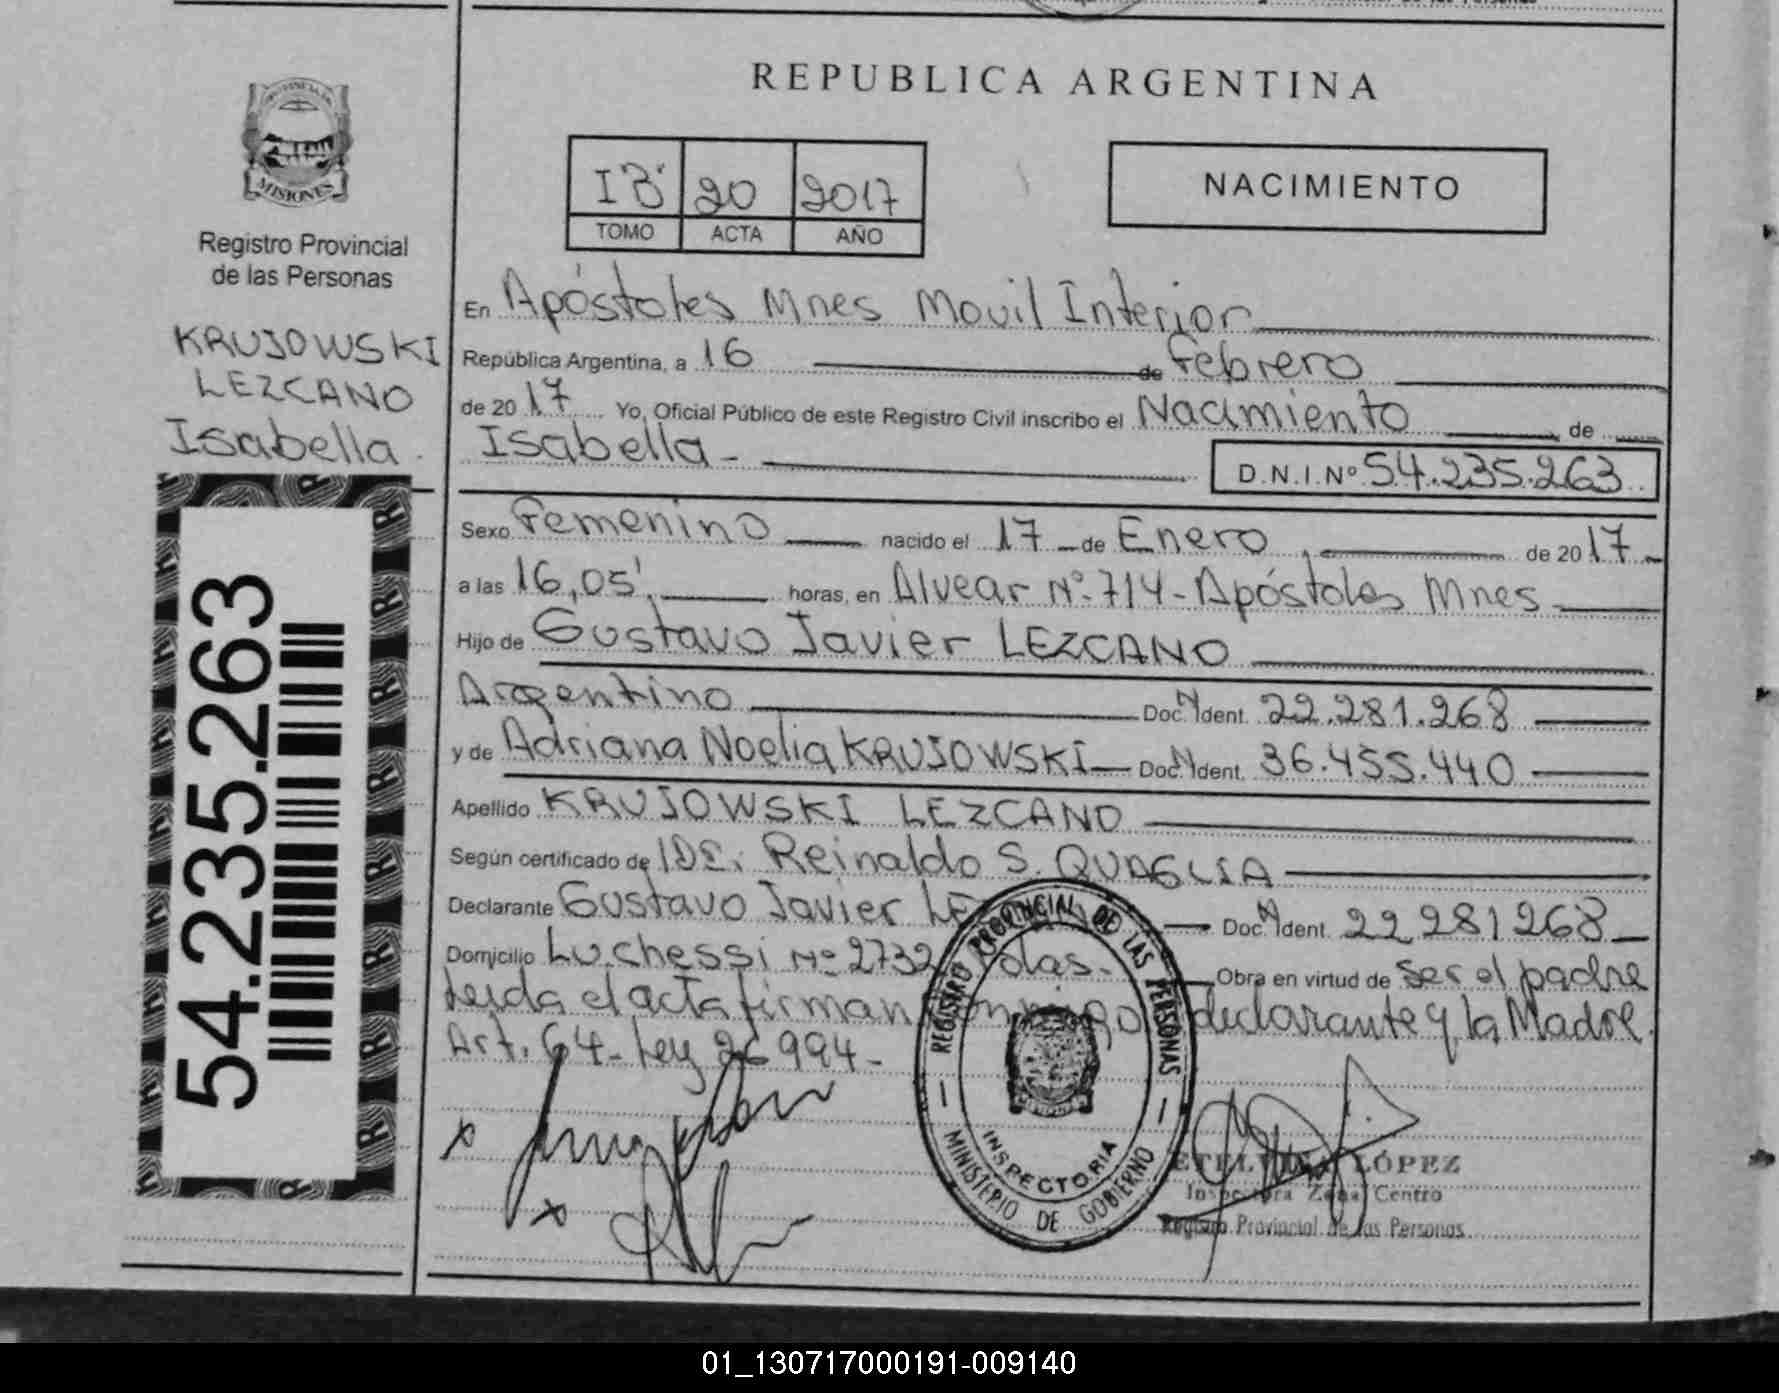 REPUBLICA ARGENTINA
MISIONES
Registro Provincial
de las Personas
KRUJOWSKI
LEZCANO
Isabella.
54.235.263
I "B" 20 2017
TOMO ACTA AÑO
NACIMIENTO
En Apóstoles Mnes Movil Interior
República Argentina, a 16 de Febrero
de 2017 Yo, Oficial Público de este Registro Civil inscribo el Nacimiento de
Isabella - D.N.I.Nº 54.235.263
Sexo Femenino nacido el 17 de Enero, de 2017
a las 16,05' horas, en Alvear Nº 714 - Apóstoles Mnes
Hijo de Gustavo Javier LEZCANO
Argentino Doc. N. Ident. 22.281.268
y de Adriana Noelia KRUJOWSKI Doc. N. Ident. 36.455.440
Apellido KRUJOWSKI LEZCANO
Según certificado de Reinaldo S. QUAGLIA
Declarante Gustavo Javier Doc. N. Ident. 22281268
Domicilio Luchessi Nº 2732 Obra en virtud de ser el padre
Leida el acta firman conmigo declarante y la Madre.
Art. 64 - Ley 26994 -
x
x
REGISTRO PROVINCIAL DE LAS PERSONAS
MINISTERIO DE GOBIERNO
INSPECTORIA
ETELVINA LÓPEZ
Inspectora Zona Centro
Registro Provincial de las Personas
01_130717000191-009140